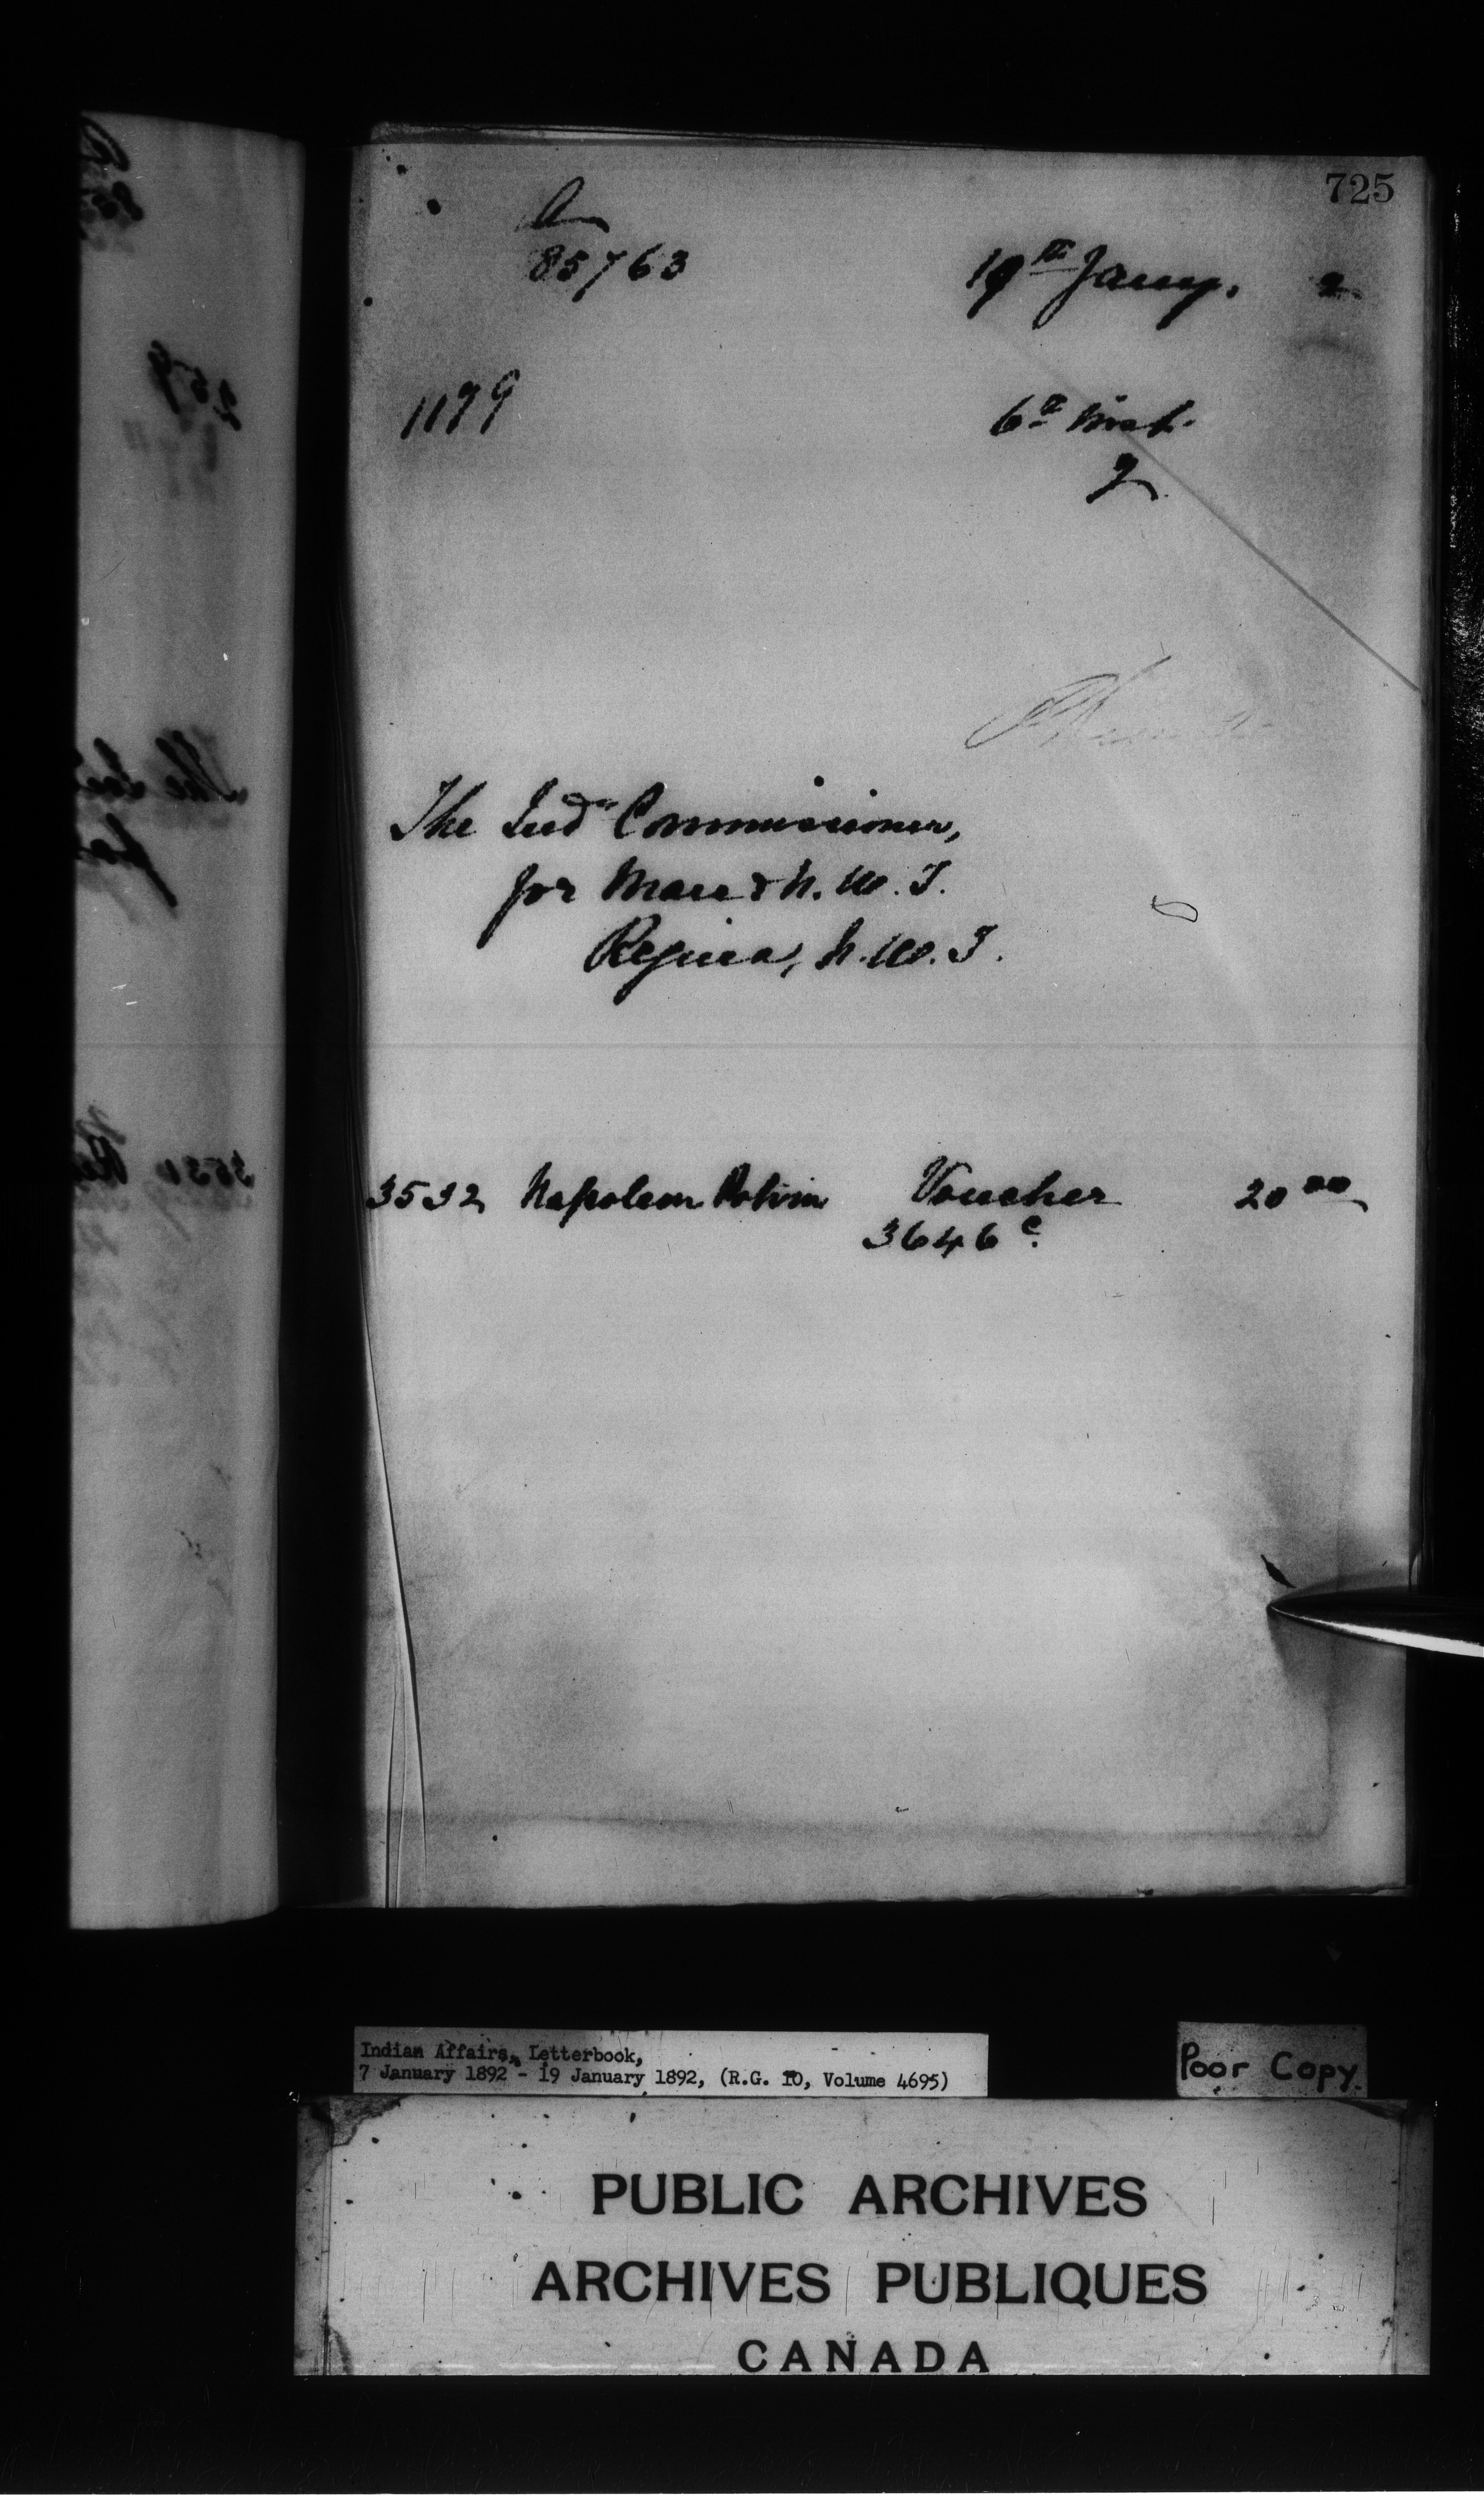 725
85763
19th Jany. 2
1199
6th inst.
2
The Indn Commissioner,
for Man & N. W. T.
Regina, N. W. T.
3532 Napoleon Potvin Voucher 20 00
3646 c.
Indian Affairs, Letterbook,
7 January 1892 - 19 January 1892, (R.G. 10, Volume 4695)
Poor Copy.
PUBLIC ARCHIVES
ARCHIVES PUBLIQUES
CANADA